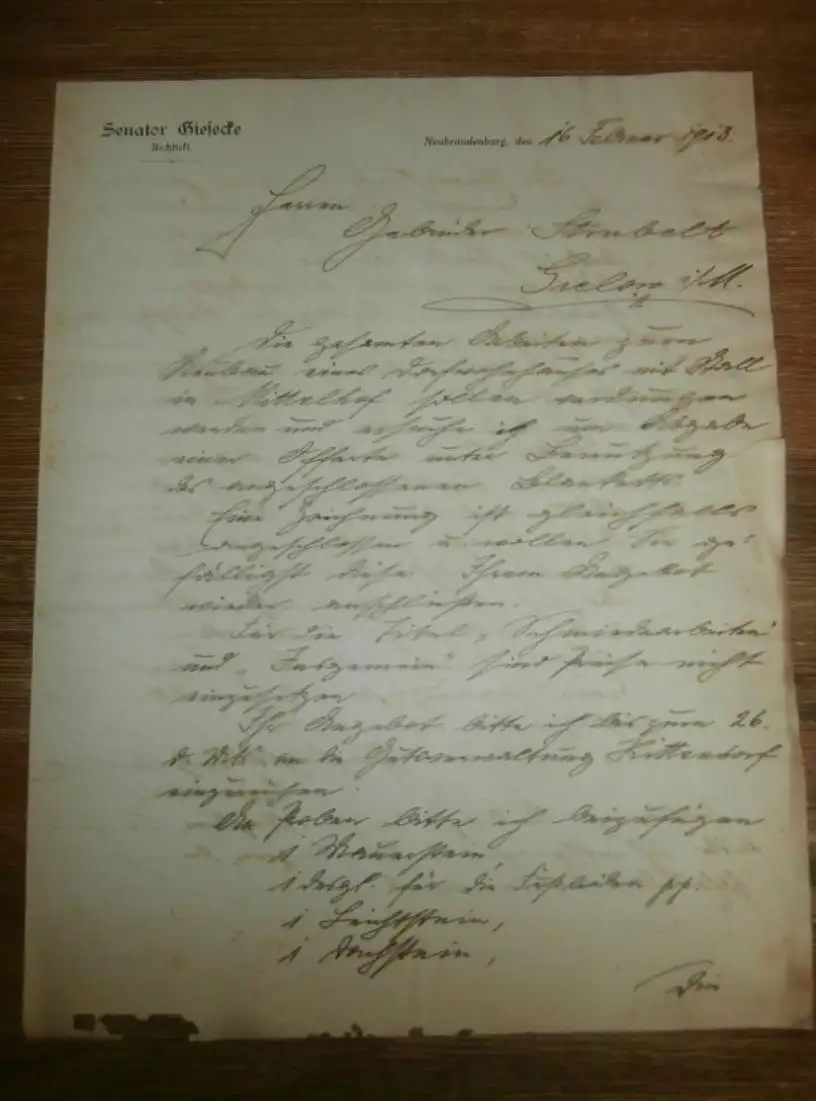 Senator Giesecke
Architekt
Neubrandenburg, den 16 Februar 1913.
Herren
Gebrüder Strubelt
Gielow i/M.
Die gesamten Arbeiten zum
Neubau eines Dorfwohnhauses mit Stall
in Mittelhof sollen verdungen
werden und ersuche ich um Abgabe
einer Offerte unter Benutzung
des angeschlossenen Blanketts.
Eine Zeichnung ist gleichfalls
angeschlossen u. wollen Sie ge-
fälligst diese Ihrem Angebot
wieder anschließen.
Für die Titel „Schmiedearbeiten"
und „Insgemein" sind Preise nicht
einzusetzen.
Ihr Angebot bitte ich bis zum 26.
d. Mts. an die Gutsverwaltung Kittendorf
einzureichen.
An Proben bitte ich beizufügen
1 Mauerstein,
1 desgl. für die Fußböden pp.
1 Leichtstein,
1 Dachstein,
Die